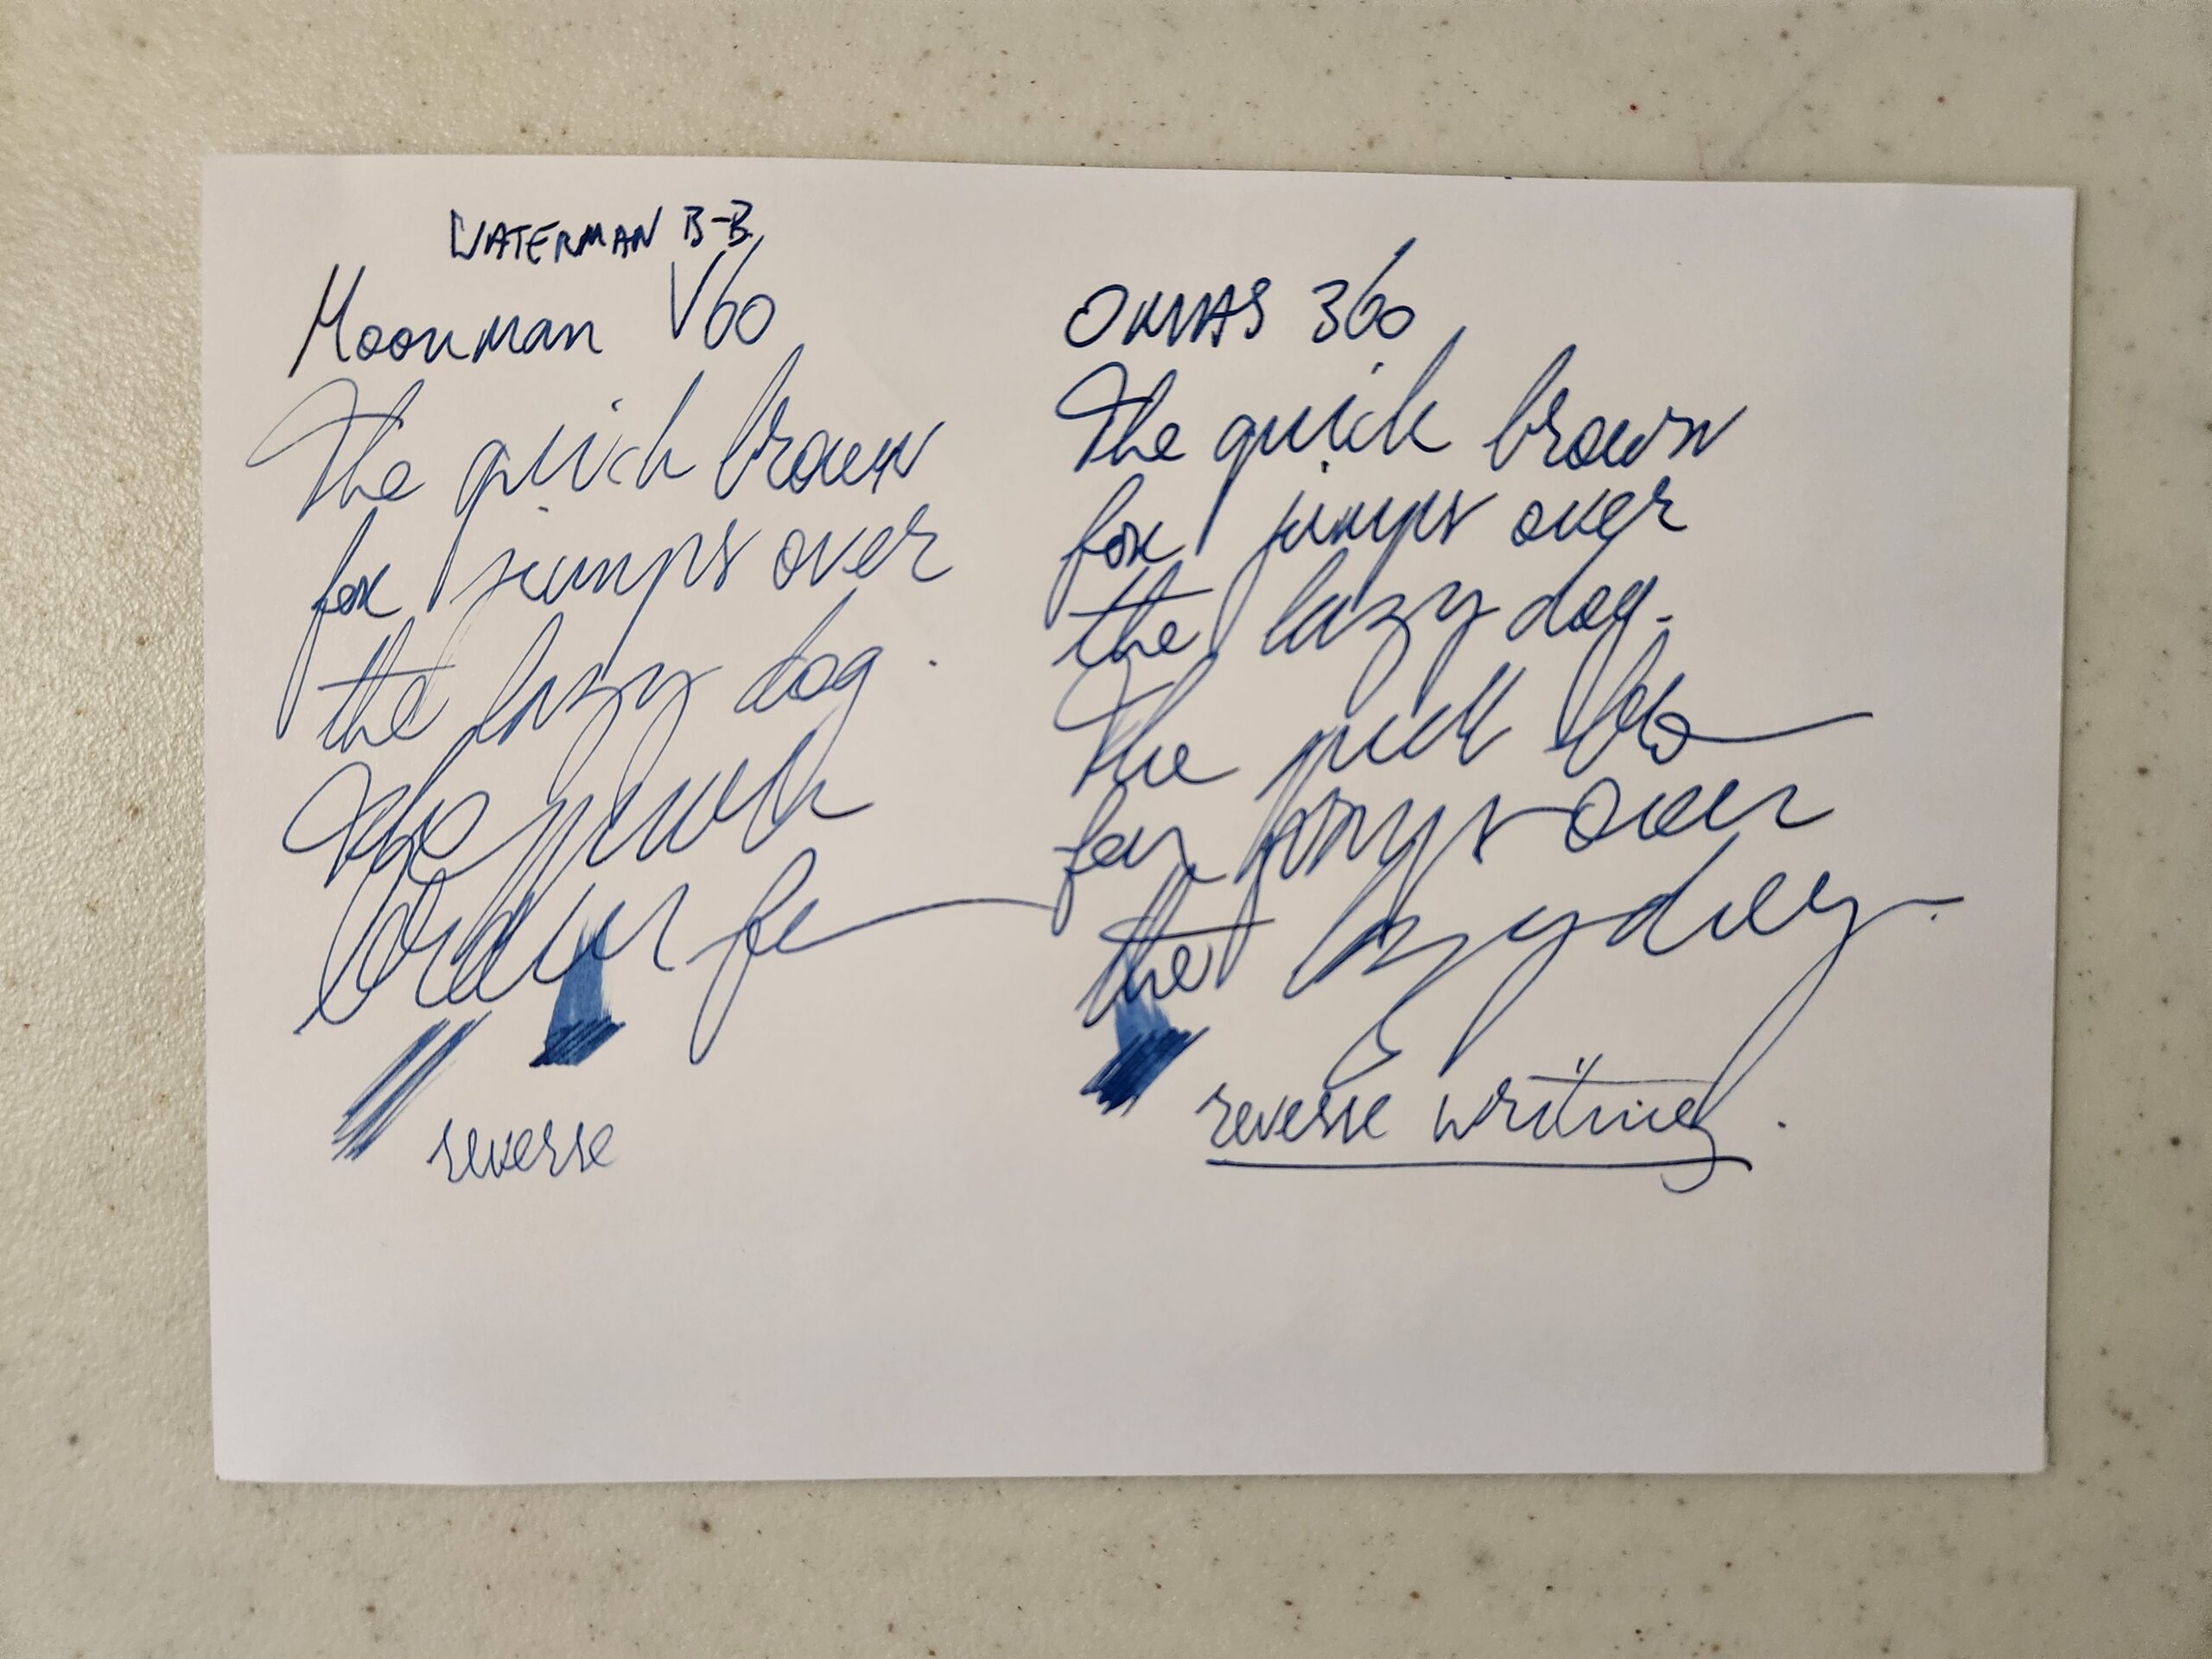 WATERMAN B-B
Moonman V60
The quick brown
fox jumps over
the lazy dog.
The quick
reverse
OMAS 360
The quick brown
fox jumps over
the lazy dog.
The quick
fox jumps over
the lazy dog.
reverse writing.